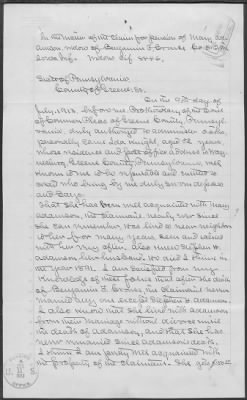 In the matter of the claim for pension of Mary Ad-
amson, widow of Benjamin F. Co.
State of Pennsylvania
County of Greene. SS.
On the 9th day of
July 1913, before me Prothonotary of the Court
of Common Pleas of Greene County, Pennsyl-
vania, duly authorized to administer oaths
personally came aged 58 years,
whose residence and post office address is Way-
nesburg Greene County, Pennsylvania, well
known to me to be reputable and entitled to
credit who being by me duly sworn deposes
and says.
That she has been well acquainted with Mary
Adamson, the claimant nearly ever since
she can remember, was kind of near neighbor
to her for many years seen and talked
with her very often. Also knew Stephen H.
Adamson, her husband, too and I think in
the year 1871. I am satisfied from my
knowledge of her folks that after the death
of Benjamin F. the claimant never
married any one except Stephen H. Adamson.
I also know that she lived with Adamson
from their marriage without divorce until
the death of Adamson, and that she has
never remarried since Adamson's death.
I think I am pretty well acquainted with
the property of the claimant. She gets